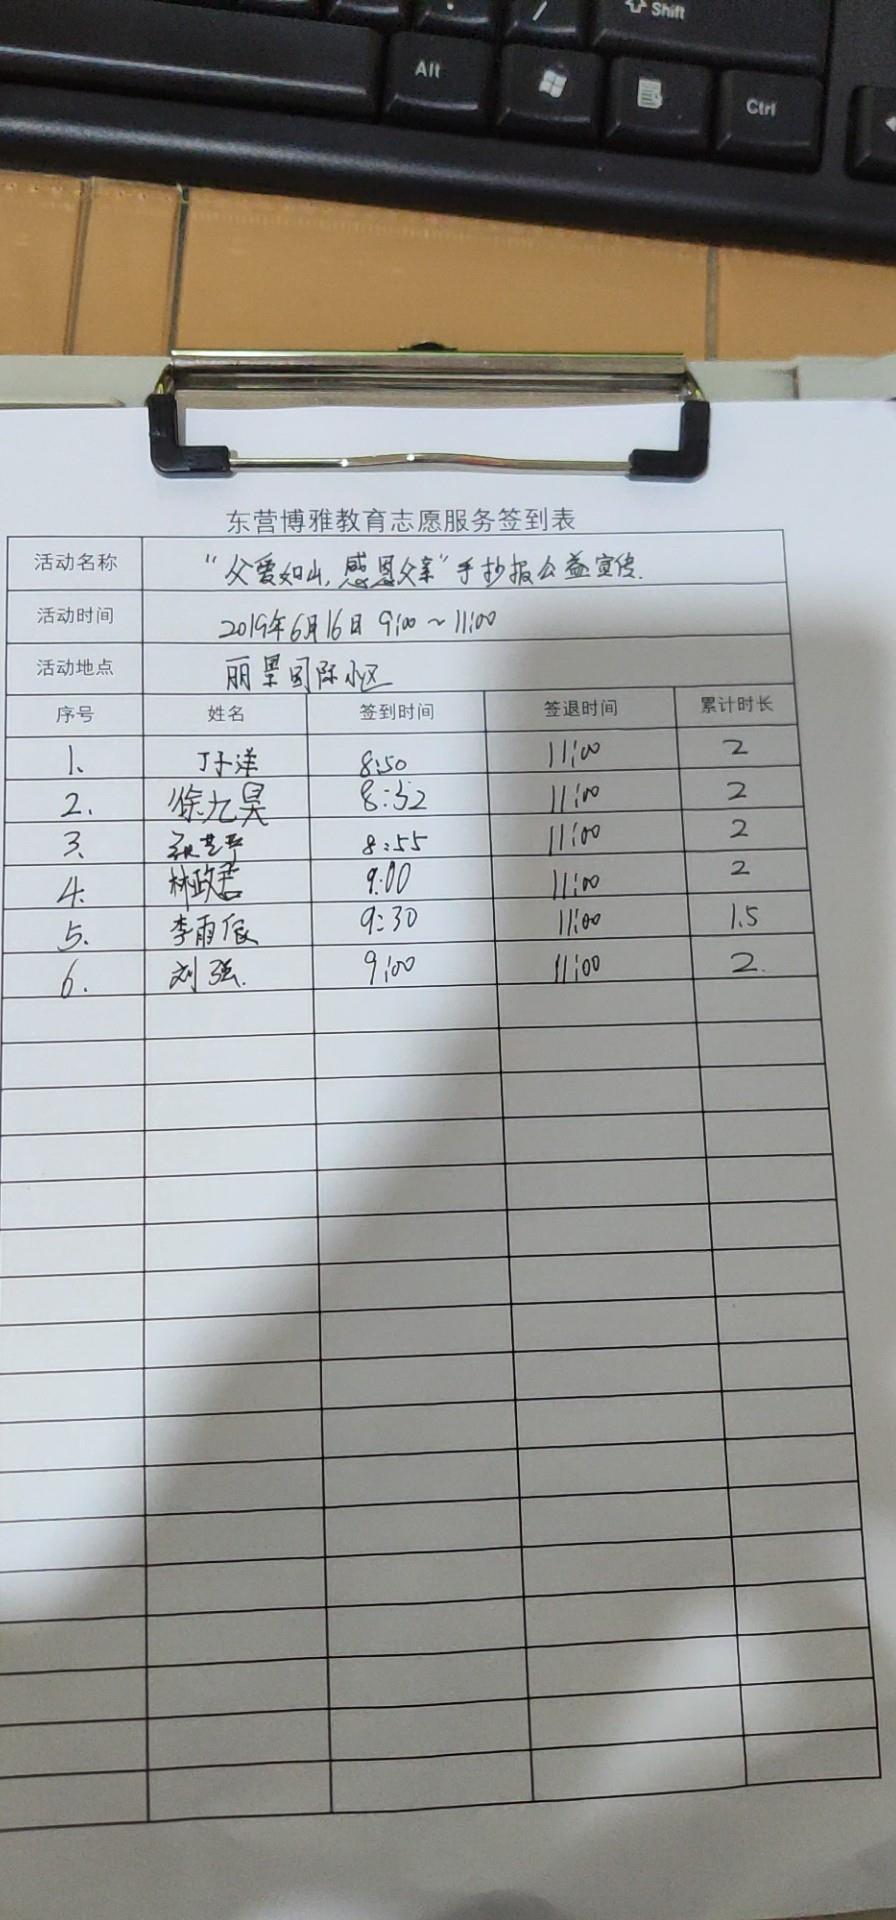 Shift
Alt
Ctrl
东营博雅教育志愿服务签到表
活动名称 "父爱如山,感恩父亲"手抄报公益宣传.
活动时间 2019年6月16日 9:00~11:00
活动地点 丽景国际小区
序号 姓名 签到时间 签退时间 累计时长
1、 丁子洋 8:50 11:00 2
2. 徐九昊 8:52 11:00 2
3、 8:55 11:00 2
4. 林政君 9:00 11:00 2
5. 李雨宸 9:30 11:00 1.5
6. 刘强. 9:00 11:00 2.